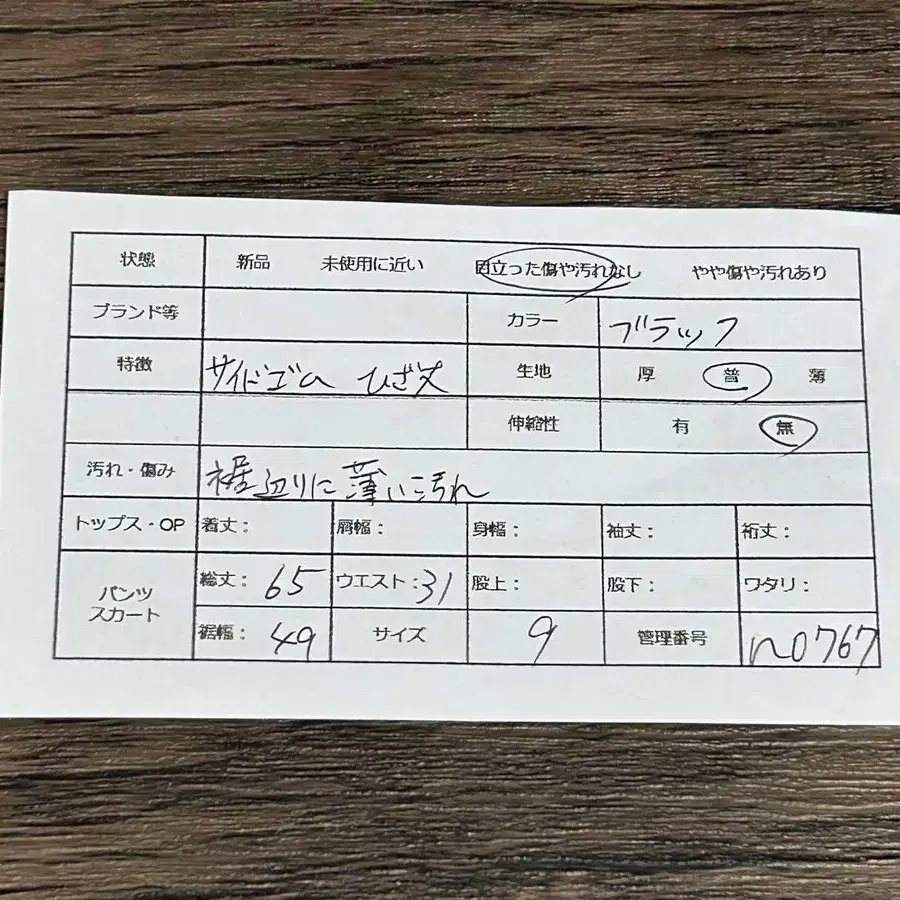 状態 新品 未使用に近い 目立った傷や汚れなし やや傷や汚れあり
ブランド等 カラー ブラック
特徴 サイドゴム ひざ丈 生地 厚 普 薄
伸縮性 有 無
汚れ・傷み 裾辺りに薄い汚れ
トップス・OP 着丈： 肩幅： 身幅： 袖丈： 裄丈：
パンツ スカート 総丈：65 ウエスト：31 股上： 股下： ワタリ：
裾幅：49 サイズ 9 管理番号 n0767